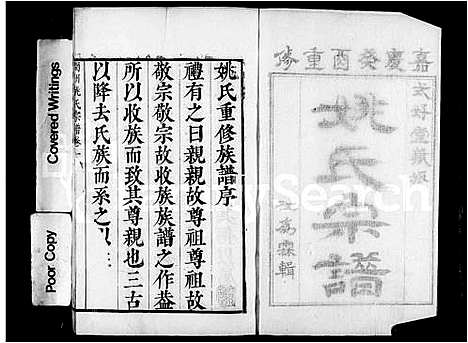 嘉慶癸酉重修
太好堂藏板
姚氏宗譜
姚氏重修族譜序
禮有之曰親親故尊祖尊祖故
敬宗敬宗故收族族譜之作葢
所以收族而致其尊親也三古
以降去氏族而系之以
Covered Writings
Poor Copy